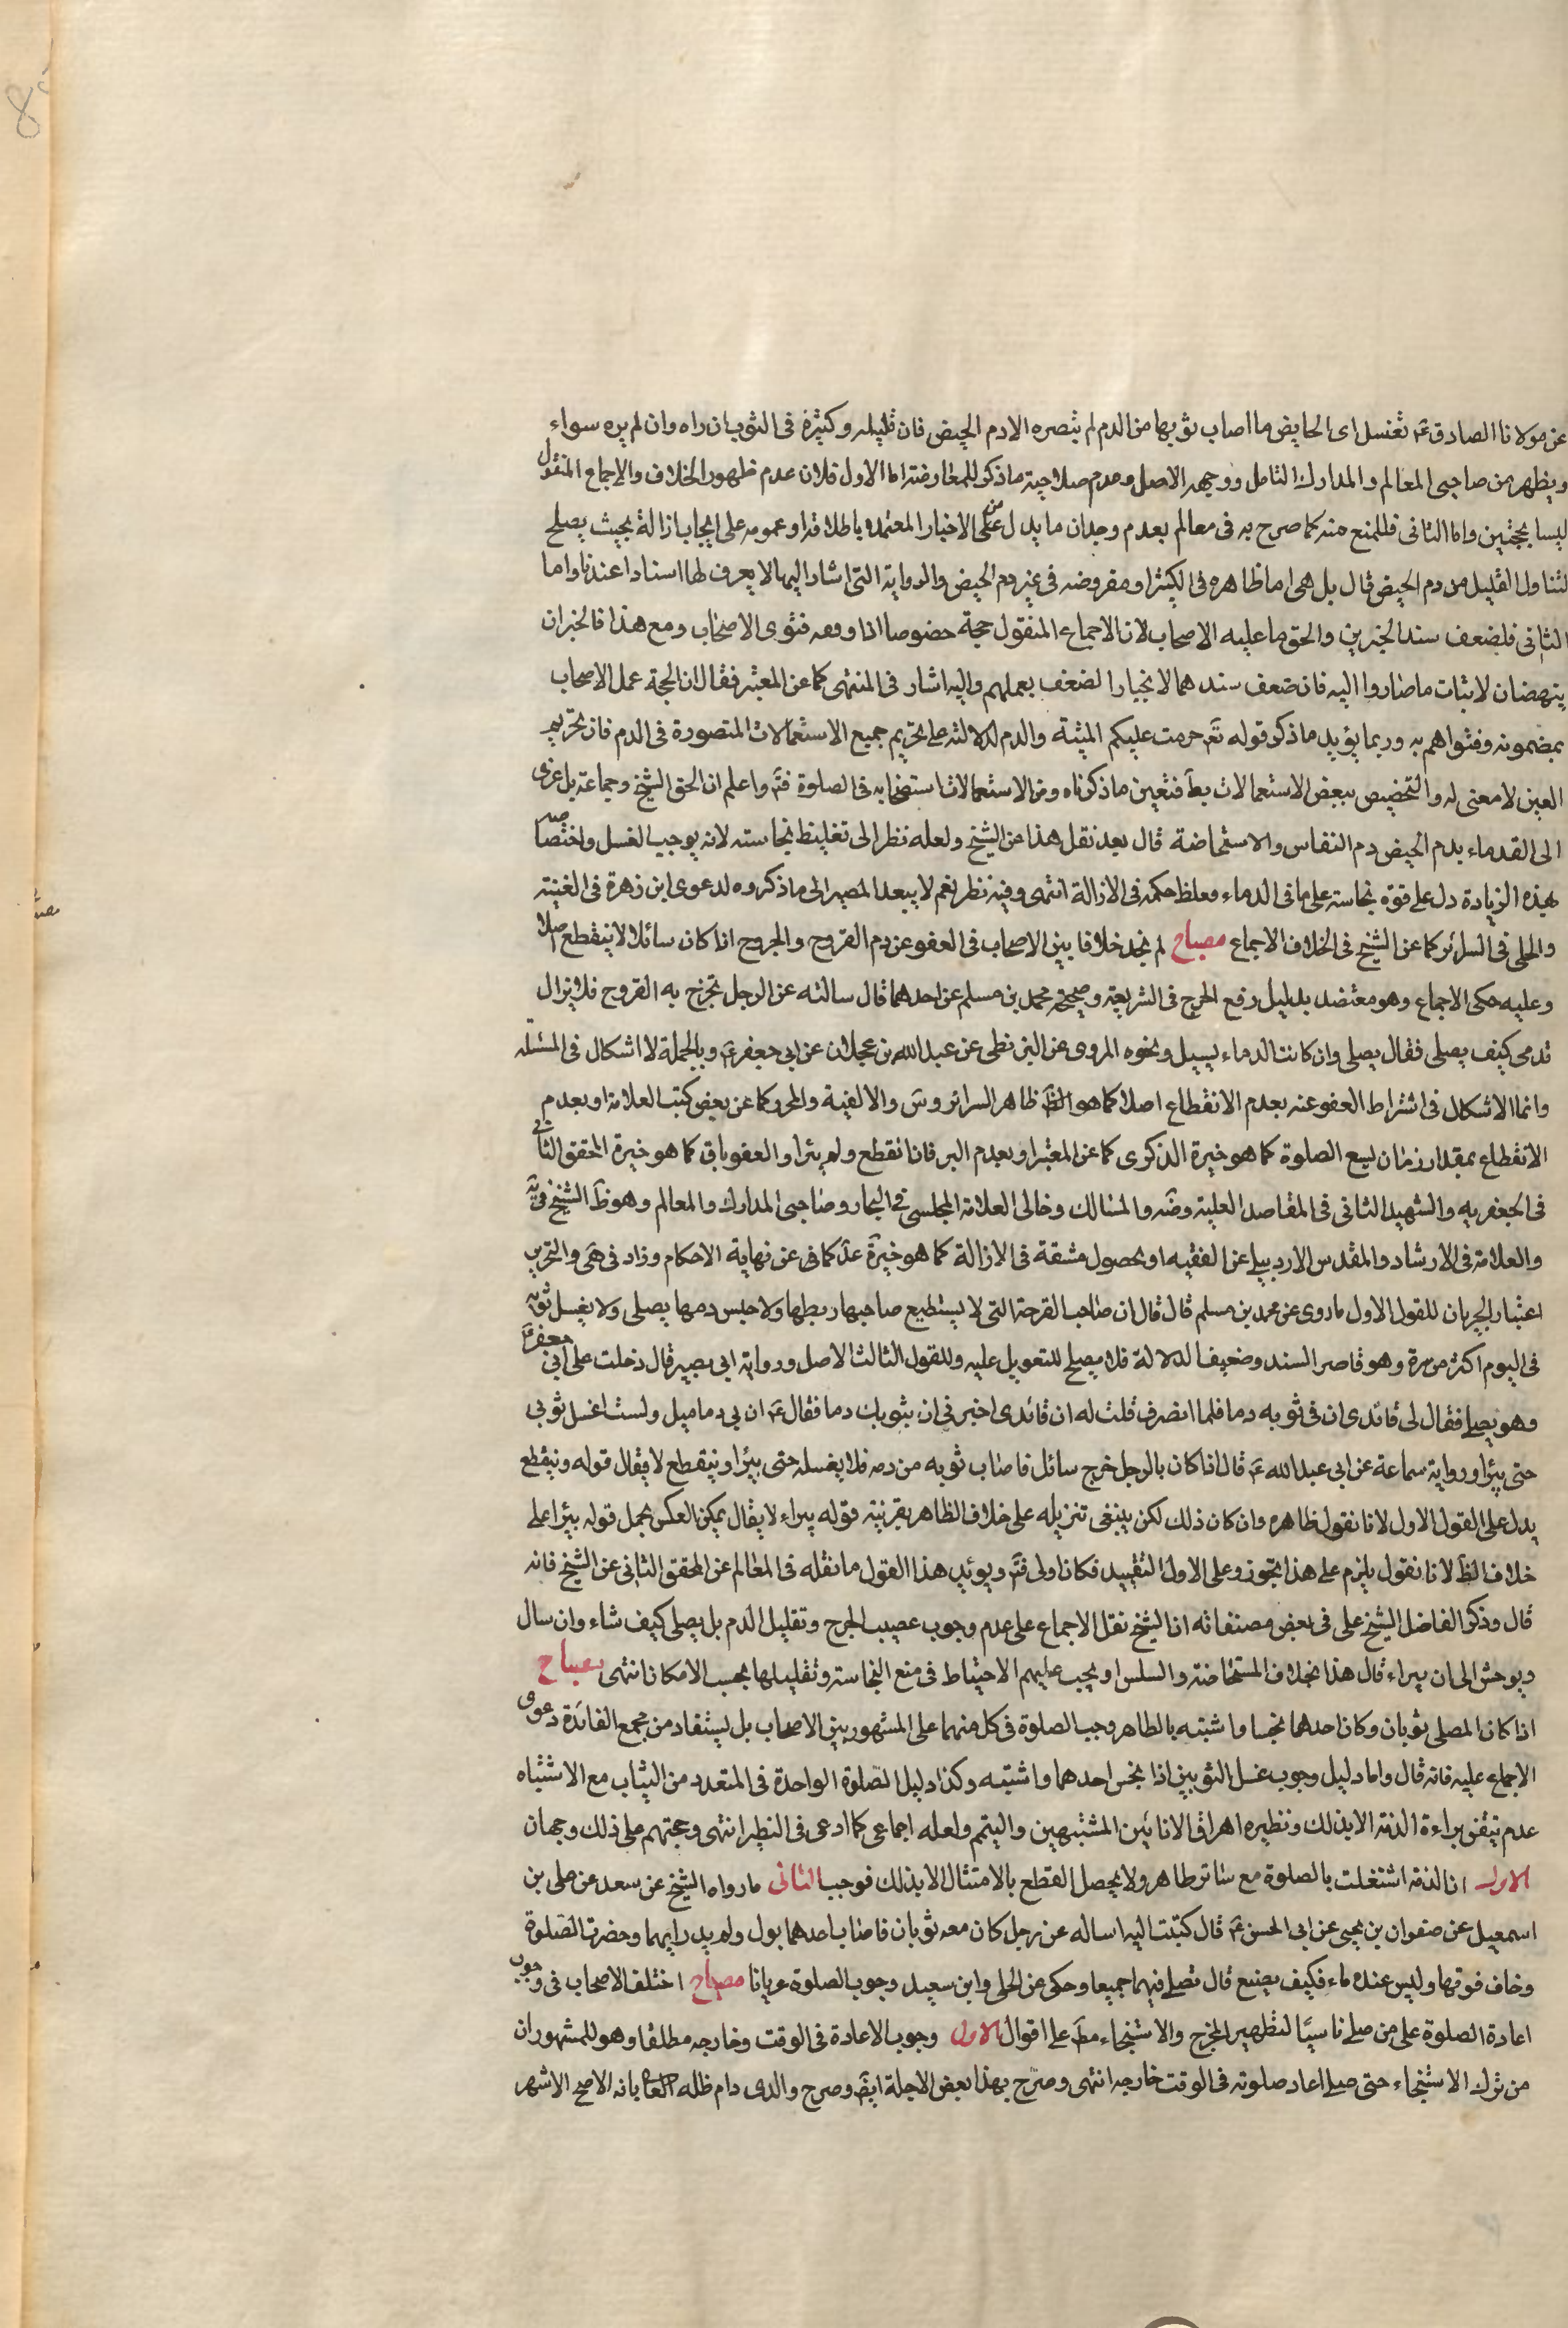 عن مولانا الصادق ع تغسل اى الحايض ما اصاب ثوبها من الدم لم تبصره الا دم الحيض فان قليله وكثيره فى الثوب ان راه وان لم يره سواء
ويظهر من صاحبى المعالم والمدارك التامل ووجهه الاصل وعدم صلاحية ما ذكر للمعارضة اما الاول فلان عدم ظهور الخلاف والاجماع المنقول
ليسا بحجتين واما الثانى فللمنع منه كما صرح به فى معالم بعدم وجدان ما يدل على من الاخبار المعتمدة باطلاقه او عمومه على ايجاب ازالة بحيث يصلح
لتناول القليل من دم الحيض قال بل هى اما ظاهره فى الكثير او مفروضه فى غير دم الحيض والرواية التى اشار اليها لا يعرف لها اسنادا عندنا واما
الثانى فلضعف سند الخبرين والحق ما عليه الاصحاب لان الاجماع المنقول حجة خصوصا اذا وفه فتوى الاصحاب ومع هذا فالخبران
ينهضان لاثبات ما صاروا اليه فان ضعف سندهما لانجبار الضعف بعملهم واليه اشار فى المنتهى كما عن المعتبر فقال ان الحجة عمل الاصحاب
بمضمونه وفتواهم به وربما يؤيد ما ذكر قوله تع حرمت عليكم الميتة والدم لدلالته على تحريم جميع الاستعمالات المتصورة فى الدم فان تحريم
العين لا معنى له والتخصيص ببعض الاستعمالات بط فتعين ما ذكرناه ومن الاستعمالات استصحابه فى الصلوة فتم واعلم ان الحق الشيخ وجماعة بل عزى
الى القدماء بدم الحيض دم النفاس والاستحاضة قال بعد نقل هذا عن الشيخ ولعله نظر الى تغليظ نجاسته لانه يوجب الغسل واختصاصه
بهذه الزيادة دل على قوة نجاسته على باقى الدماء فغلظ حكمه فى الازالة انتهى وفيه نظر نعم لا يبعد المصير الى ما ذكروه لدعوى ابن زهرة فى الغنية
والحلى فى السرائر كما عن الشيخ فى الخلاف الاجماع مصباح لم نجد خلافا بين الاصحاب فى العفو عن دم القروح والجروح اذا كان سائلا لا ينقطع اصلا
وعليه حكى الاجماع وهو معتضد بدليل رفع الحرج فى الشريعة وصحيحة محمد بن مسلم عن احدهما قال سالته عن الرجل تخرج به القروح فلا تزال
تدمى كيف يصلى فقال يصلى وان كانت الدماء تسيل ونحوه المروى عن البزنطى عن عبد الله بن عجلان عن ابى جعفر ع وبالجملة لا اشكال فى المسئلة
وانما الاشكال فى اشتراط العفو عنه بعدم الانقطاع اصلا كما هو ظاهر السرائر وس والالفية والمحرر كما عن بعض كتب العلامة او بعدم
الانقطاع بمقدار زمان يسع الصلوة كما هو خيرة الذكرى كما عن المعتبر او بعدم البرء فاذا انقطع ولم يبرأ والعفو باق كما هو خيرة المحقق الثانى
فى الجعفريه والشهيد الثانى فى المقاصد العلية وضه والمسالك وخالى العلامة المجلسى فى البحار وصاحبى المدارك والمعالم وهو ظ الشيخ فى يه
والعلامة فى الارشاد والمقدس الاردبيلى عن الفقيه او بحصول مشقة فى الازالة كما هو خيرة عد كما فى عن نهاية الاحكام وزاد فى هى والتحرير
اعتبار الجريان للقول الاول ما روى عن محمد بن مسلم قال قال ان صاحب القرحة التى لا يستطيع صاحبها ربطها ولا حبس دمها يصلى ولا يغسل ثوبه
فى اليوم اكثر من مرة وهو قاصر السند وضعيف الدلالة فلا يصلح للتعويل عليه وللقول الثالث الاصل ورواية ابى بصير قال دخلت على ابى جعفر ع
وهو يصلى فقال لى قائدى ان فى ثوبه دما فلما انصرف قلت له ان قائدى اخبرنى ان بثوبك دما فقال ع ان بى دماميل ولست اغسل ثوبى
حتى يبرأ ورواية سماعة عن ابى عبد الله ع قال اذا كان بالرجل جرح سائل فاصاب ثوبه من دمه فلا يغسله حتى يبرأ وينقطع لا يقال قوله وينقطع
يدل على القول الاول لانا نقول ظاهره وان كان ذلك لكن ينبغى تنزيله على خلاف الظاهر بقرينة قوله يبراء لا يقال يمكن العكس بحمل قوله يبرأ على
خلاف الظ لانا نقول يلزم على هذا تجوز وعلى الاول التقييد فكان اولى فتم ويؤيد هذا القول ما نقله فى المعالم عن المحقق الثانى عن الشيخ فانه
قال وذكر الفاضل الشيخ على فى بعض مصنفاته ان الشيخ نقل الاجماع على عدم وجوب عصب الجرح وتقليل الدم بل يصلى كيف شاء وان سال
الى ان يبراء قال هذا بخلاف المستحاضة والسلس او يجب عليهم الاحتياط فى منع النجاسة وتقليلها بحسب الامكان انتهى مصباح
اذا كان المصلى ثوبان وكان احدهما نجسا واشتبه بالطاهر وجب الصلوة فى كل منهما على المشهور بين الاصحاب بل يستفاد من مجمع الفائدة دعوى
الاجماع عليه فانه قال واما دليل وجوب غسل الثوبين اذا نجس احدهما واشتبه وكذا دليل الصلوة الواحدة فى المتعدد من الثياب مع الاشتباه
عدم تيقن براءة الذمة الا بذلك ونظيره اهراق الانائين المشتبهين والتيمم ولعله اجماعى كما ادعى فى النظير انتهى وحجتهم على ذلك وجهان
الاول ان الذمة اشتغلت بالصلوة مع ساتر طاهر ولا يحصل القطع بالامتثال الا بذلك فوجب الثانى ما رواه الشيخ عن سعد عن على بن
اسمعيل عن صفوان بن يحيى عن ابى الحسن ع قال كتبت اليه اساله عن رجل كان معه ثوبان فاصاب احدهما بول ولم يدر ايهما وحضرت الصلوة
وخاف فوتها وليس عنده ماء فكيف يصنع قال تصلى فيهما جميعا وحكى عن الحلى وابن سعيد وجوب الصلوة عريانا مصباح اختلف الاصحاب فى وجوب
اعادة الصلوة على من صلى ناسيا لتطهير المخرج والاستنجاء مط على اقوال الاول وجوب الاعادة فى الوقت وخارجه مطلقا وهو للمشهور ان
من ترك الاستنجاء حتى صلى اعاد صلوته فى الوقت خارجه انتهى وصرح بهذا بعض الاجلة ايض وصرح والدى دام ظله العا بانه الاصح الاشهر